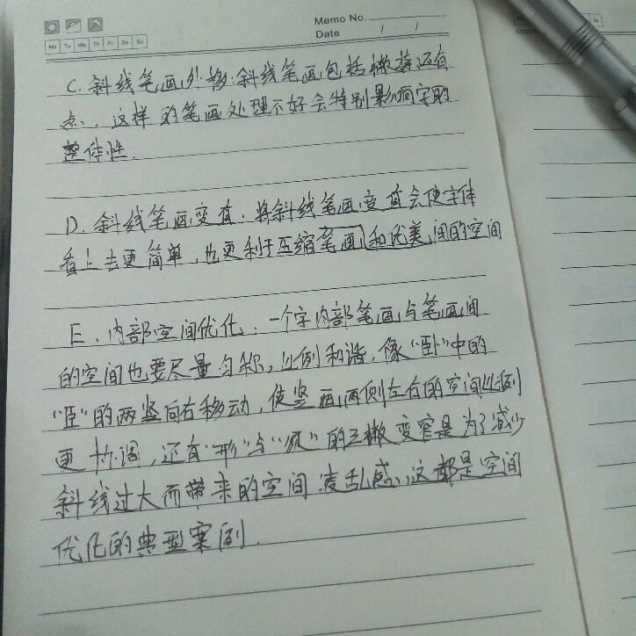 Memo No.
Date / /
Mo Tu We Th Fr Sa Su
C. 斜线笔画外扬：斜线笔画包括撇捺还有
点、这样的笔画处理不好会特别影响字的
整体性.
D. 斜线笔画变直：将斜线笔画变直会使字体
看上去更简单，也更利于压缩笔画和优美间的空间
E. 内部空间优化：一个字内部笔画与笔画间
的空间也要尽量匀称，比例和谐，像“卧”中的
“臣”的两竖向右移动，使竖画两侧左右的空间比例
更协调，还有“形”与“须”的三撇变窄是为了减少
斜线过大而带来的空间凌乱感、这都是空间
优化的典型案例.